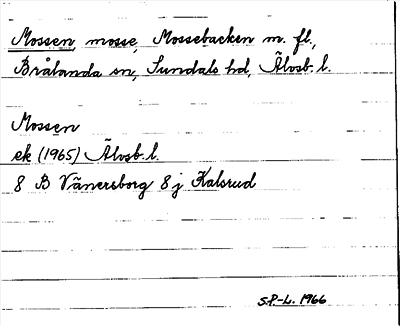 Mossen, mosse, Mossebacken m. fl.,
Brålanda sn, Sundals hd, Älvsb. l.
Mossen
ek (1965) Älvsb. l.
8 B Vänersborg 8 j Kalsrud
S.P.-L. 1966